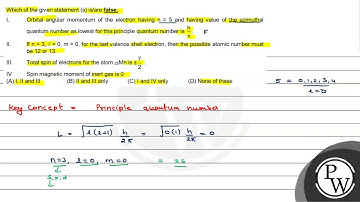 Which of the given statement (s) is/are false.
I. Orbital angular momentum of the electron having n = 5 and having value of the azimuthal
quantum number as lowest for this principle quantum number is h/π F
II. If n = 3, ℓ = 0, m = 0, for the last valence shell electron, then the possible atomic number must
be 12 or 13.
III. Total spin of electrons for the atom ₂₅Mn is ± 7/2
IV Spin magnetic moment of inert gas is 0
(A) I, II and III (B) II and III only (C) I and IV only (D) None of these
5 = 0,1,2,3,4
l=0
Key Concept - Principle quantum number
L = √l(l+1) h/2π = √0(1) h/2π = 0
n=3, l=0, m=0 = 3s
s,p,d
PW